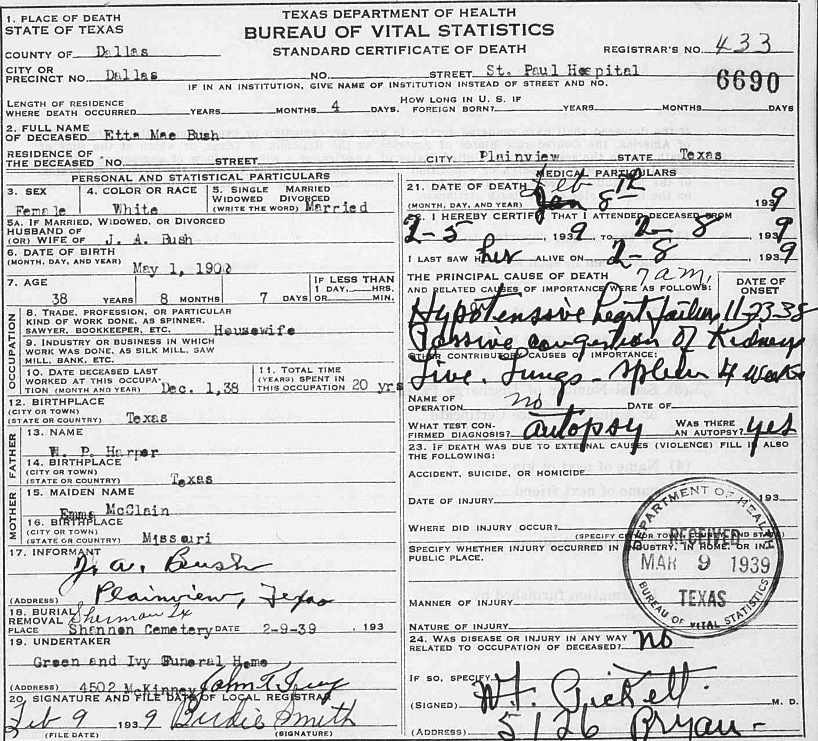 TEXAS DEPARTMENT OF HEALTH
BUREAU OF VITAL STATISTICS
STANDARD CERTIFICATE OF DEATH
1. PLACE OF DEATH
STATE OF TEXAS
REGISTRAR'S NO. 433
COUNTY OF Dallas
CITY OR
PRECINCT NO. Dallas NO. STREET St. Paul Hospital
6690
IF IN AN INSTITUTION, GIVE NAME OF INSTITUTION INSTEAD OF STREET AND NO.
LENGTH OF RESIDENCE
WHERE DEATH OCCURRED YEARS MONTHS 4 DAYS.
HOW LONG IN U. S. IF
FOREIGN BORN? YEARS MONTHS DAYS
2. FULL NAME
OF DECEASED Etta Mae Bush
RESIDENCE OF
THE DECEASED NO. STREET CITY Plainview STATE Texas
PERSONAL AND STATISTICAL PARTICULARS
3. SEX
Female
4. COLOR OR RACE
White
5. SINGLE MARRIED
WIDOWED DIVORCED
(WRITE THE WORD) Married
5A. IF MARRIED, WIDOWED, OR DIVORCED
HUSBAND OF
(OR) WIFE OF J. A. Bush
6. DATE OF BIRTH
(MONTH, DAY, AND YEAR) May 1,
7. AGE
38 YEARS 8 MONTHS 7 DAYS
IF LESS THAN
1 DAY, HRS.
OR MIN.
OCCUPATION
8. TRADE, PROFESSION, OR PARTICULAR
KIND OF WORK DONE, AS SPINNER,
SAWYER, BOOKKEEPER, ETC. Housewife
9. INDUSTRY OR BUSINESS IN WHICH
WORK WAS DONE, AS SILK MILL, SAW
MILL, BANK, ETC.
10. DATE DECEASED LAST
WORKED AT THIS OCCUPA-
TION (MONTH AND YEAR) Dec. 1,38
11. TOTAL TIME
(YEARS) SPENT IN
THIS OCCUPATION 20 yrs
12. BIRTHPLACE
(CITY OR TOWN)
(STATE OR COUNTRY) Texas
FATHER
13. NAME
W. P. Harper
14. BIRTHPLACE
(CITY OR TOWN)
(STATE OR COUNTRY) Texas
MOTHER
15. MAIDEN NAME
Emma McClain
16. BIRTHPLACE
(CITY OR TOWN)
(STATE OR COUNTRY) Missouri
17. INFORMANT
J. A. Bush
(ADDRESS) Plainview, Texas
18. BURIAL
REMOVAL Sherman Tx
PLACE Shannon Cemetery DATE 2-9-39 , 193
19. UNDERTAKER
Green and Ivy Funeral Home
(ADDRESS) 4502 McKinney John T. Ivy
20. SIGNATURE AND FILE DATE OF LOCAL REGISTRAR
Feb 9 193 9 Birdie Smith
(FILE DATE) (SIGNATURE)
MEDICAL PARTICULARS
21. DATE OF DEATH Feb
(MONTH, DAY, AND YEAR) Jan 8th 193 9
22. I HEREBY CERTIFY THAT I ATTENDED DECEASED FROM
2-5 , 193 9, TO 2-8 , 193 9
I LAST SAW H her ALIVE ON 2-8 , 193 9
7 am.
THE PRINCIPAL CAUSE OF DEATH
AND RELATED CAUSES OF IMPORTANCE WERE AS FOLLOWS:
DATE OF
ONSET
Hypertensive heart failure 11-23-38
Passive congestion of Kidneys
OTHER CONTRIBUTORY CAUSES OF IMPORTANCE:
Live. Lungs - Spleen 4 weeks
NAME OF
OPERATION no DATE OF
WHAT TEST CON-
FIRMED DIAGNOSIS? autopsy
WAS THERE
AN AUTOPSY? yes
23. IF DEATH WAS DUE TO EXTERNAL CAUSES (VIOLENCE) FILL IN ALSO
THE FOLLOWING:
ACCIDENT, SUICIDE, OR HOMICIDE
DATE OF INJURY 193
WHERE DID INJURY OCCUR?
(SPECIFY CITY OR TOWN, COUNTY, AND STATE)
SPECIFY WHETHER INJURY OCCURRED IN INDUSTRY, IN HOME, OR IN
PUBLIC PLACE.
MANNER OF INJURY
NATURE OF INJURY
DEPARTMENT OF HEALTH
RECEIVED
MAR 9 1939
TEXAS
BUREAU OF VITAL STATISTICS
24. WAS DISEASE OR INJURY IN ANY WAY
RELATED TO OCCUPATION OF DECEASED? no
IF SO, SPECIFY
(SIGNED) Pickett. M. D.
(ADDRESS) 5126 Bryan -